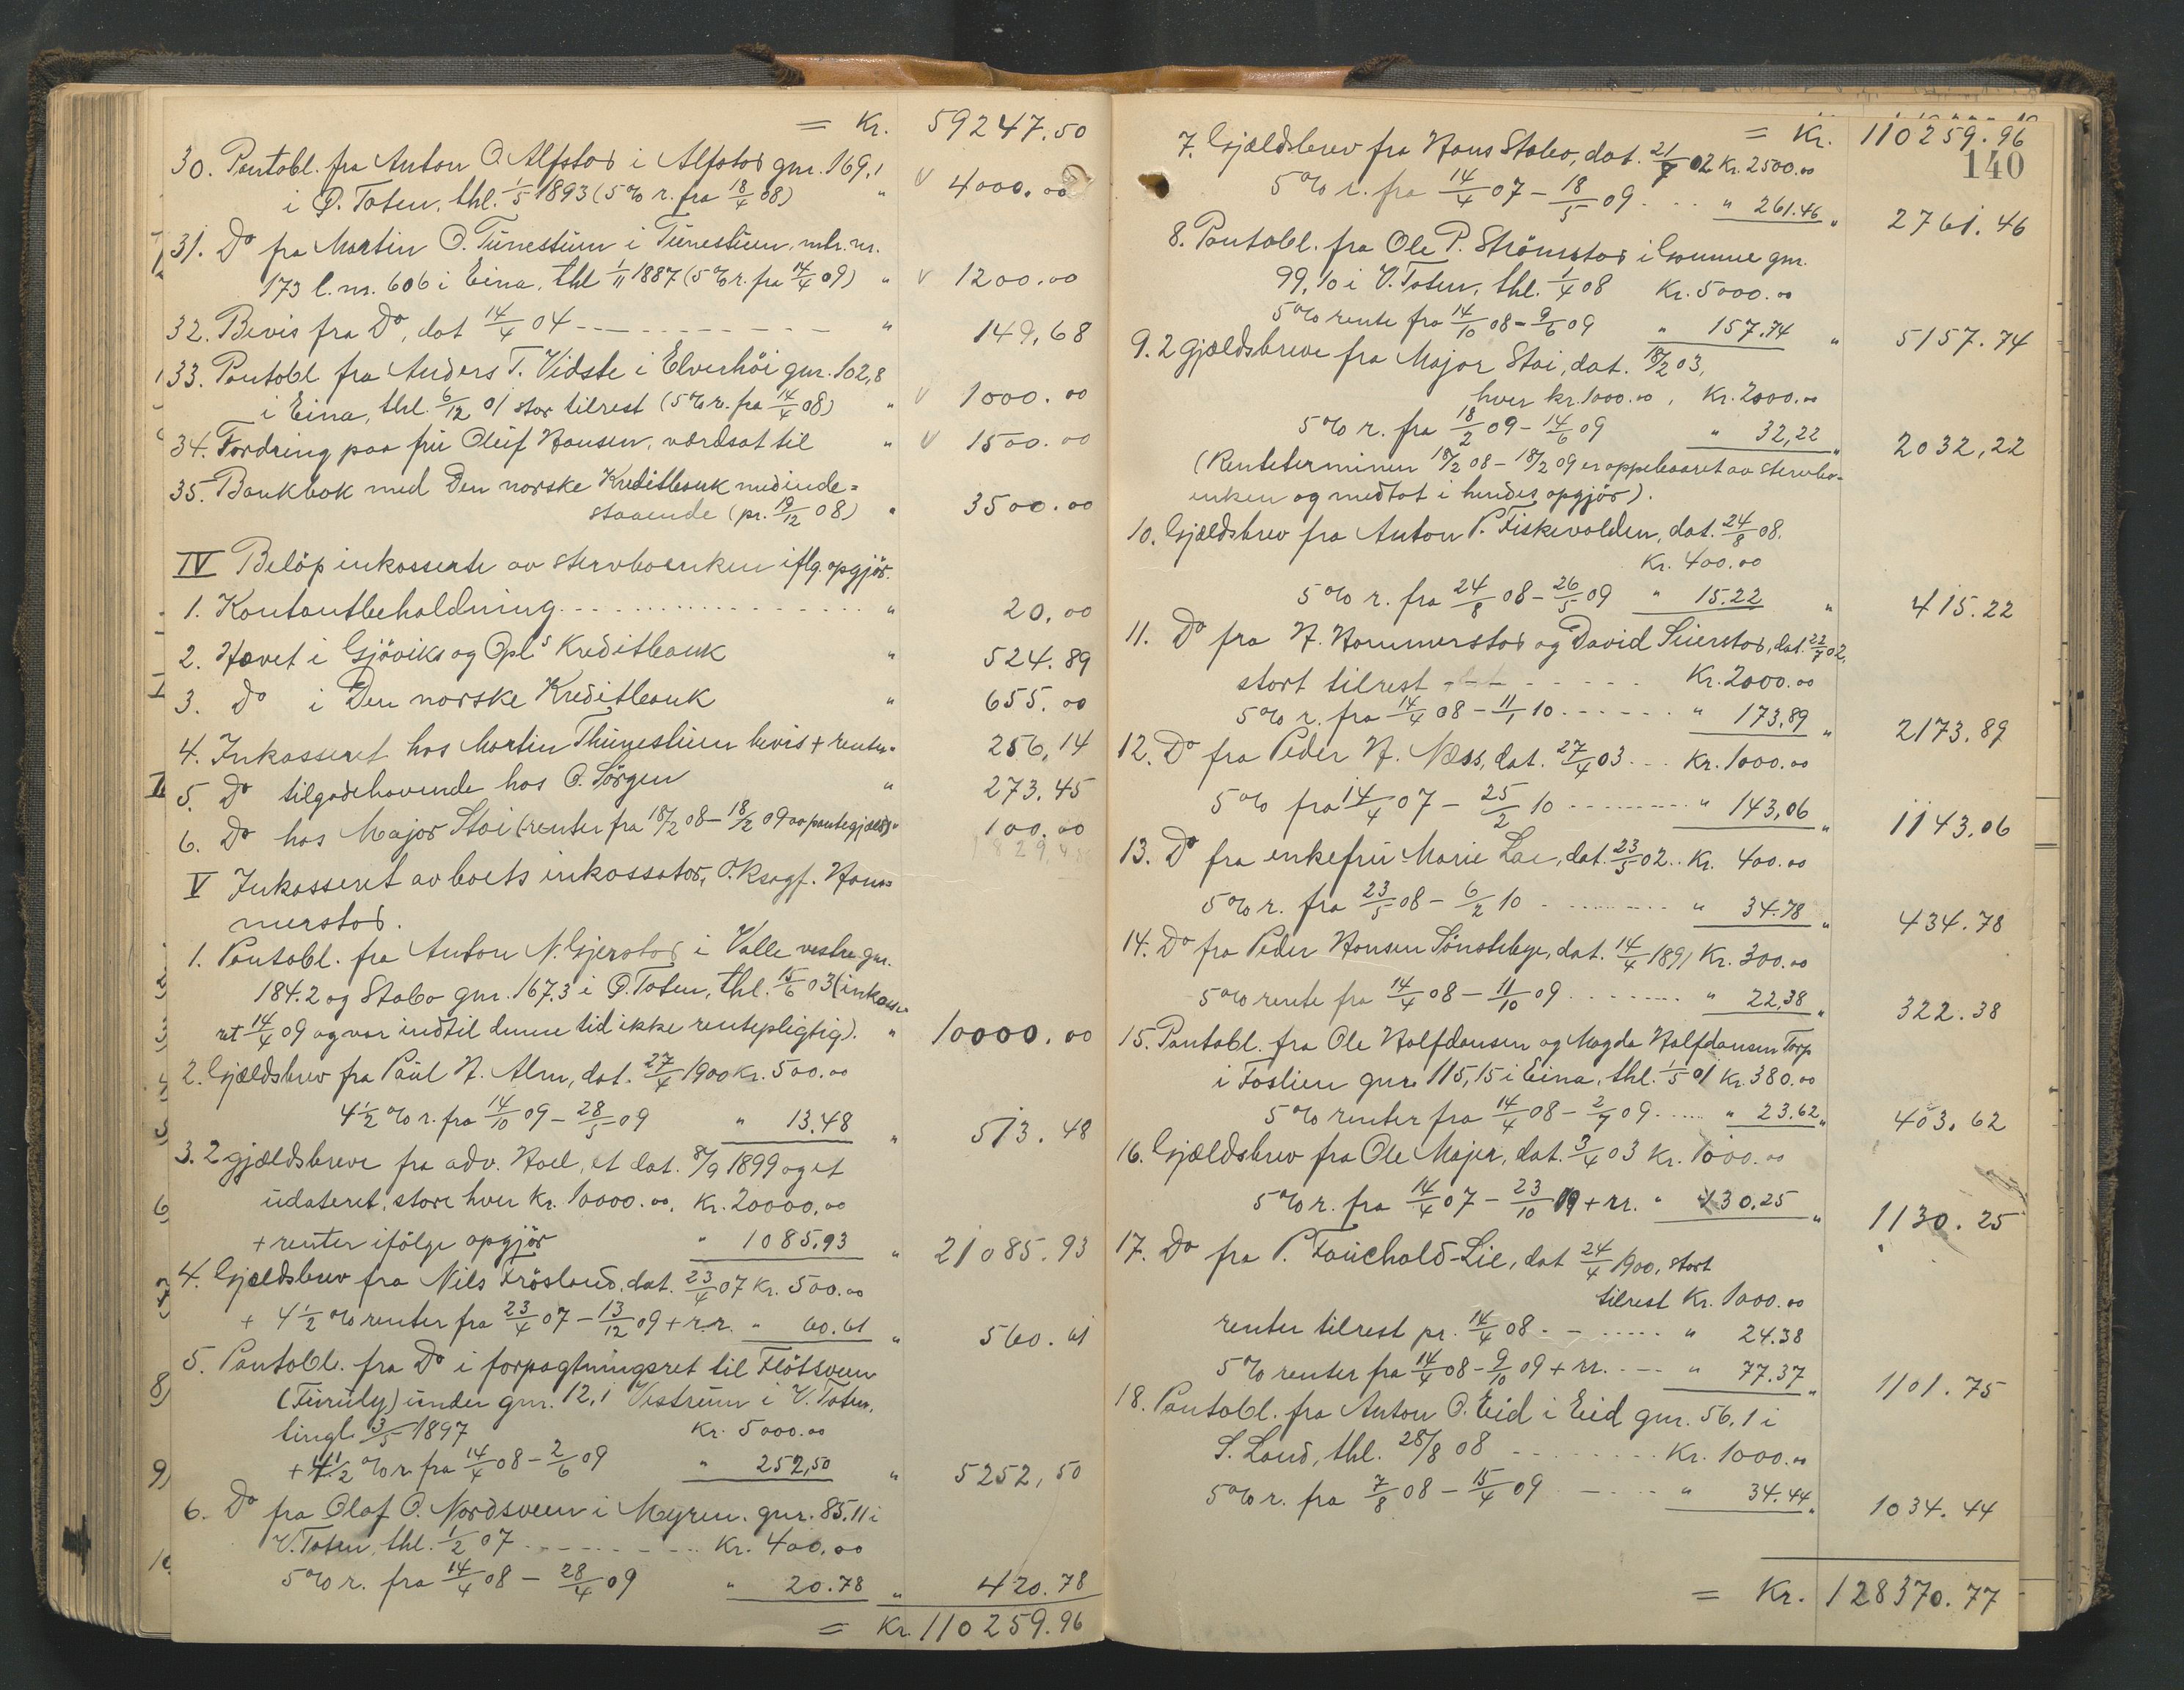 = Kr. 59247.50
30. Pantobl. fra Anton O. Alfstad i Alfstad gnr. 169,1
i Ø. Toten, thl. 1/5 1893 (5 % r. fra 18/4 08) " V 4000.00
31. Do fra Martin O. Tünestüen i Tünestüen, mtr. nr.
173 l.nr. 606 i Eina, thl 1/11 1887 (5 % r. fra 14/4 09) " V 1200.00
32. Bevis fra Do, dat 14/4 04 - - - - - " 149,68
33. Pantobl. fra Anders T. Vidste i Elverhöi gnr. 102,8
i Eina, thl. 6/12 01 stor tilrest (5 % r. fra 14/4 08) " V 1000.00
34. Fordring paa frü Olüf Hansen, værdsat til " V 1500.00
35. Bankbok med Den norske Kreditbank med inde=
staaende (pr. 19/12 08) " 3500.00
IV Belöp inkasserte av stervboenken iflg. opgjör.
1. Kontantbeholdning - - - - - " 20.00
2. Hævet i Gjöviks og Opl.s Kreditbank " 524.89
3. Do i Den norske Kreditbank " 655.00
4. Inkasseret hos Martin Thünestüen bevis + renter " 256,14
5. Do tilgodehavende hos O. Sörgen " 273.45
6. Do hos Major Stai (renter fra 18/2 08 - 18/2 09 av pantegjæld) " 100.00
V Inkasseret av boets inkassator, O.Rsagf. Ham=
merstad.
1. Pantobl. fra Anton N. Gjerstad i Valle vestre gnr.
184.2 og Stabo gnr. 167.3 i Ø. Toten, thl. 15/6 03 (inkasse
ret 14/4 09 og var indtil denne tid ikke rentepligtig). " 10000.00
2. Gjældsbrev fra Paül H. Alm, dat. 27/4 1900 Kr. 500.00
4½ % r. fra 14/10 09 - 28/5 09 " 13.48 " 513.48
3. 2 gjældsbreve fra adv. Hoel, et dat. 8/9 1899 og et
üdateret, store hver Kr. 10000.00, Kr. 20000,00
+ renter ifölge opgjör " 1085.93 " 21085.93
4. Gjældsbrev fra Nils Frösland, dat. 23/4 07 Kr. 500.00
+ 4½ % renter fra 23/4 07 - 13/12 09 + r.r. " 60.61 " 560.61
5. Pantobl. fra Do i forpagtningsret til Flötsveen
(Fürüly) ünder gnr. 12,1 Vestrüm i V. Toten,
tingl. 3/5 1897 Kr. 5000.00
+ 4½ % r. fra 14/4 08 - 2/6 09 " 252,50 " 5252,50
6. Do fra Olaf O. Nordsveen i Myren. gnr. 85.11 i
V. Toten, thl. 1/2 07 - - - - - Kr. 400.00
5 % r. fra 14/4 08 - 28/4 09 " 20.78 " 420.78
= Kr. 110259.96
= Kr. 110259.96
140
7. Gjældsbrev fra Hans Stabo, dat. 21/7 02 Kr. 2500.00
5 % r. fra 14/4 07 - 18/5 09 - - - " 261.46 " 2761.46
8. Pantobl. fra Ole P. Strömstad i Gaume gnr.
99,10 i V. Toten, thl. 1/4 08 Kr. 5000.00
5 % rente fra 14/10 08 - 9/6 09 " 157.74 " 5157.74
9. 2 gjældsbreve fra Major Stai, dat. 18/2 03,
hver kr. 1000.00, Kr. 2000.00
5 % r. fra 18/2 09 - 14/6 09 " 32,22 " 2032,22
(Renteterminen 18/2 08 - 18/2 09 er oppebaaret av stervbo-
enken og medtat i hendes opgjör).
10. Gjældsbrev fra Anton P. Fiskevolden, dat. 24/8 08.
Kr. 400.00
5 % r. fra 24/8 08 - 26/5 09 " 15.22 " 415.22
11. Do fra H. Hammerstad og David Seierstad, dat. 22/7 02,
stort tilrest - - - - - Kr. 2000.00
5 % r. fra 14/4 08 - 11/1 10 - - - - - " 173,89 " 2173.89
12. Do fra Peder H. Næss, dat. 27/4 03 - - - Kr. 1000.00
5 % fra 14/4 07 - 25/2 10 - - - - - " 143,06 " 1143.06
13. Do fra enkefrü Marie Lae, dat. 23/5 02 .. Kr. 400.00
5 % r. fra 23/5 08 - 6/2 10 - - - - - " 34.78 " 434.78
14. Do fra Peder Hansen Sönsteby, dat. 14/4 1891 Kr. 300.00
5 % rente fra 14/4 08 - 11/10 09 - - - - - " 22,38 " 322.38
15. Pantobl. fra Ole Halfdansen og Magda Halfdansen Torp
i Foslien gnr. 115,15 i Eina, thl. 1/5 01 Kr. 380.00
5 % renter fra 14/4 08 - 2/7 09 ..... " 23.62 " 403.62
16. Gjældsbrev fra Ole Majer, dat. 3/4 03 Kr. 1000.00
5 % r. fra 14/4 07 - 23/10 09 + rr. " 130.25 " 1130.25
17. Do fra P. Fauchald-Lie, dat 24/4 1900, stort
tilrest Kr. 1000.00
renter tilrest pr. 14/4 08 . - ..... " 24.38
5 % renter fra 14/4 08 - 9/10 09 + rr. - - - " 77.37 " 1101.75
18. Pantobl. fra Anton O. Eid i Eid gnr. 56,1 i
S. Land, thl. 28/8 08 - - - - - Kr. 1000.00
5 % r. fra 7/8 08 - 15/4 09 - - - - " 34.44 " 1034.44
= Kr. 128370.77